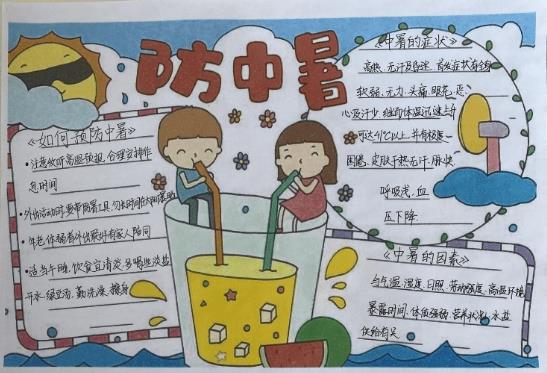 防中暑
《如何预防中暑》
·注意收听高温预报,合理安排作
息时间
·外出活动时,要带防暑工具,勿长时间在太阳下暴晒
·年老体弱者外出最好有家人陪同
·适当午睡,饮食宜清淡,多喝些淡盐
开水,绿豆汤,勤洗澡、擦身
《中暑的症状》
高热、无汗及昏迷
软弱、乏力、头痛、眼花、恶
心及汗少,继而体温迅速上升
可达41℃以上,并有极度
困倦,皮肤干热无汗,脉快
呼吸浅,血
压下降
《中暑的因素》
与气温、湿度、日照、劳动强度、高温环境
暴露时间、体质强弱、营养状况、水盐
供给有关